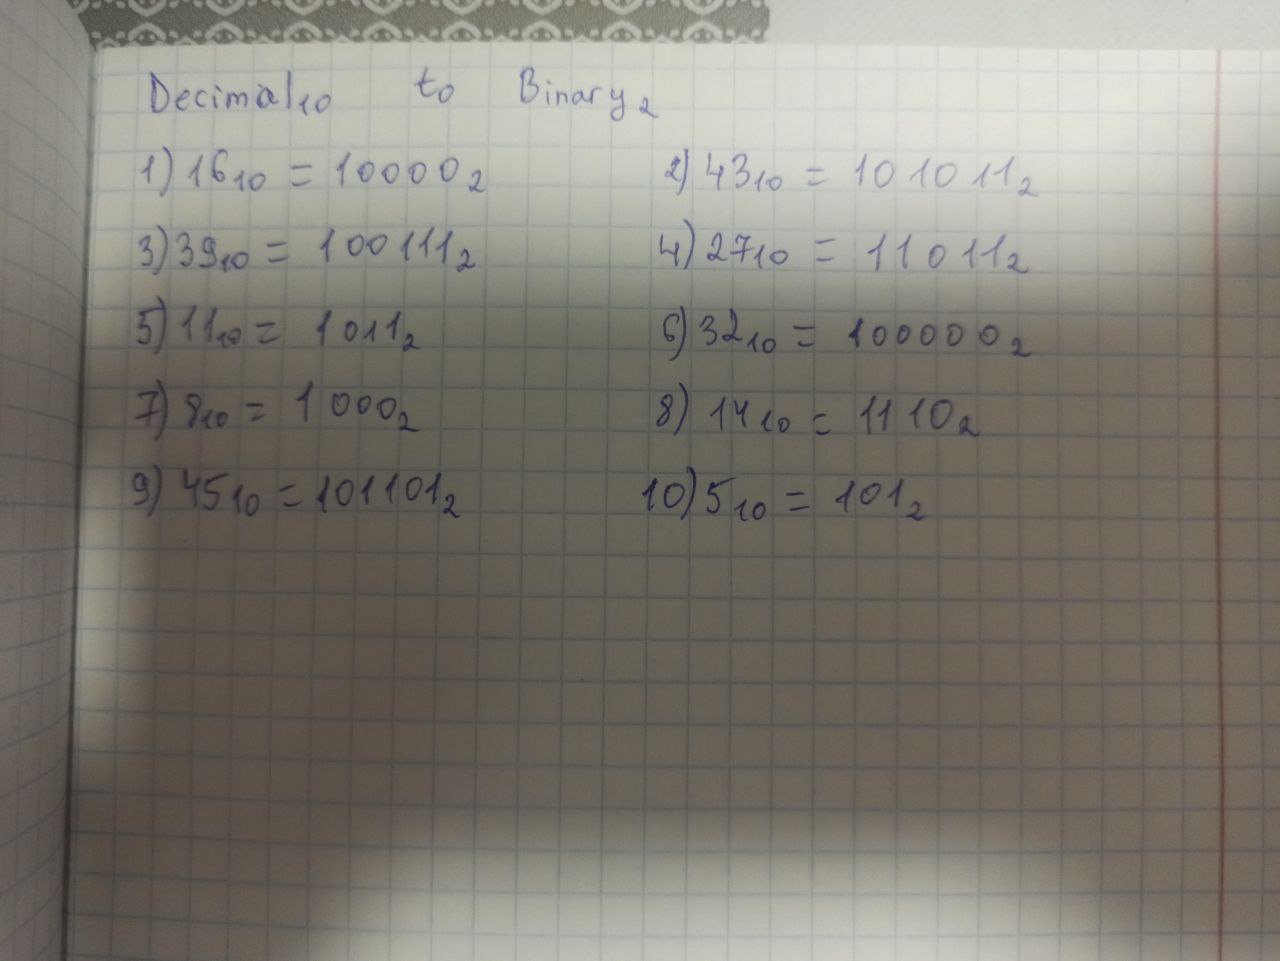 Decimal₁₀ to Binary₂
1) 16₁₀ = 10000₂ 2) 43₁₀ = 101011₂
3) 39₁₀ = 100111₂ 4) 27₁₀ = 11011₂
5) 11₁₀ = 1011₂ 6) 32₁₀ = 100000₂
7) 8₁₀ = 1000₂ 8) 14₁₀ = 1110₂
9) 45₁₀ = 101101₂ 10) 5₁₀ = 101₂